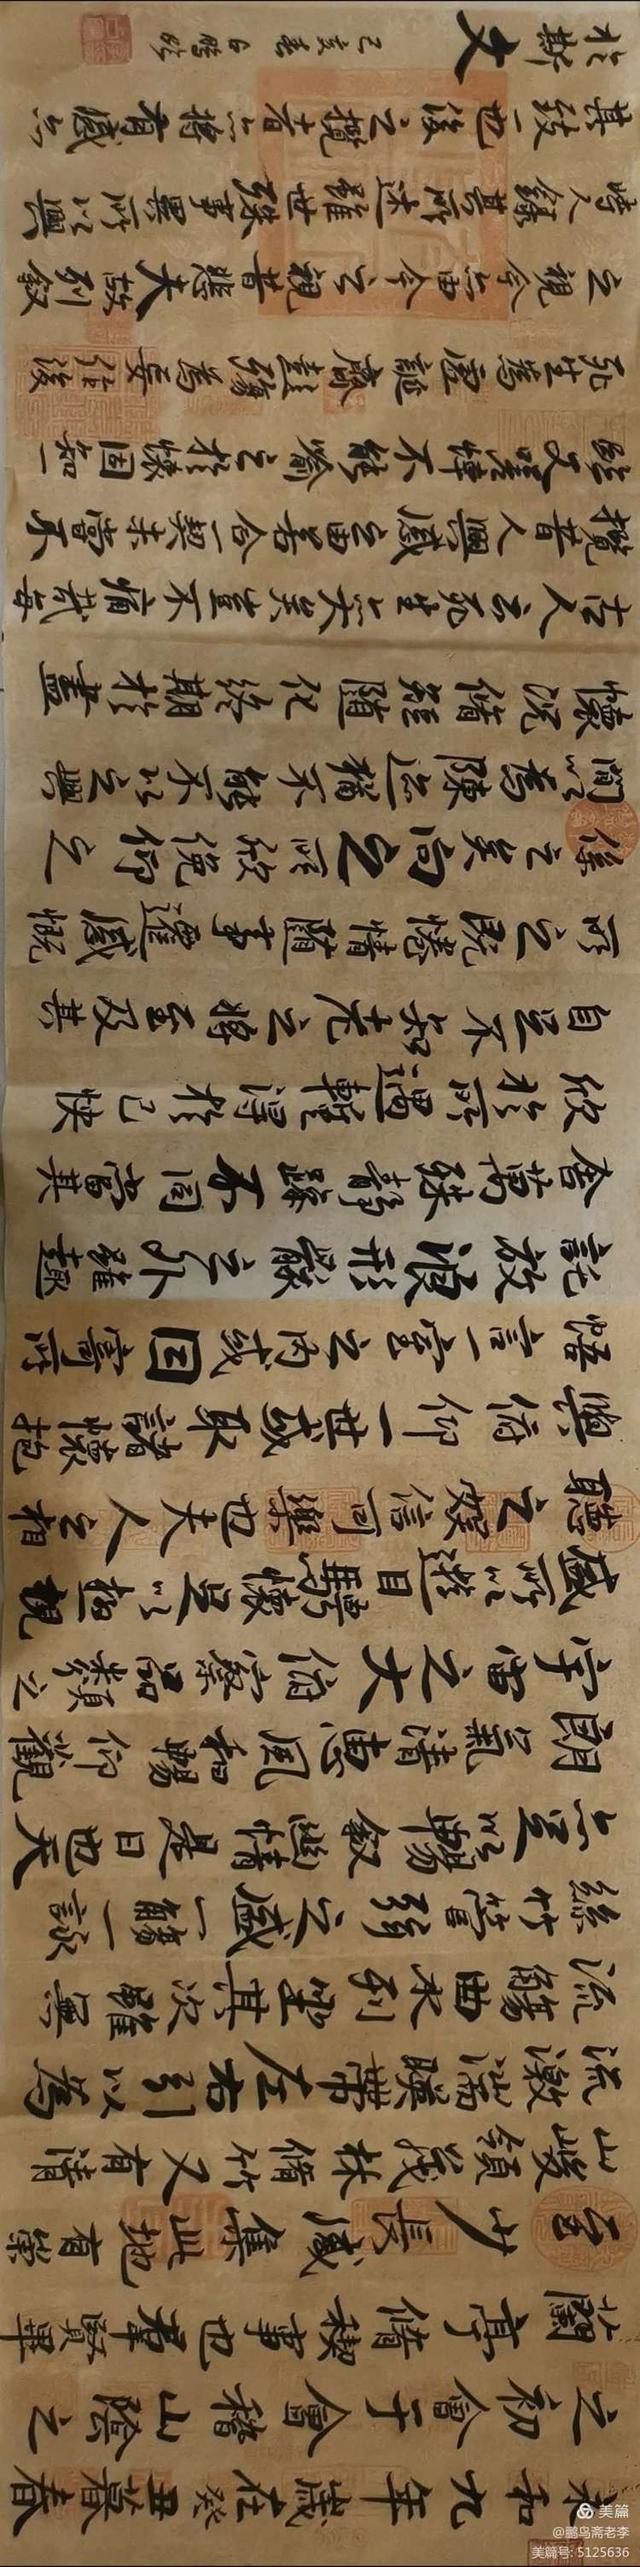 永和九年歲在癸丑暮春
之初會于會稽山陰之
蘭亭脩稧事也群賢畢
至少長咸集此地有崇
山峻領茂林脩竹又有清
流激湍暎帶左右引以為
流觴曲水列坐其次雖無
絲竹管弦之盛一觴一詠
亦足以暢敘幽情是日也天
朗氣清惠風和暢仰觀
宇宙之大俯察品類之
盛所以遊目騁懷足以極視
聽之娛信可樂也夫人之相
與俯仰一世或取諸懷抱
悟言一室之內或因寄所
託放浪形骸之外雖趣
舍萬殊靜躁不同當其
欣於所遇暫得於己快
自足不知老之將至及其
所之既惓情隨事遷感慨
係之矣向之所欣俛仰之
間以為陳迹猶不能不以之興
懷況脩短隨化終期於盡
古人云死生亦大矣豈不痛哉每
攬昔人興感之由若合一契未嘗不
臨文嗟悼不能喻之於懷固知一
死生為虛誕齊彭殤為妄作後
之視今亦由今之視昔悲夫故列敘
時人錄其所述雖世殊事異所以興
其致一也後之攬者亦將有感
於斯文
己亥春
美篇
@鹏鸟斋老李
美篇号: 5125636